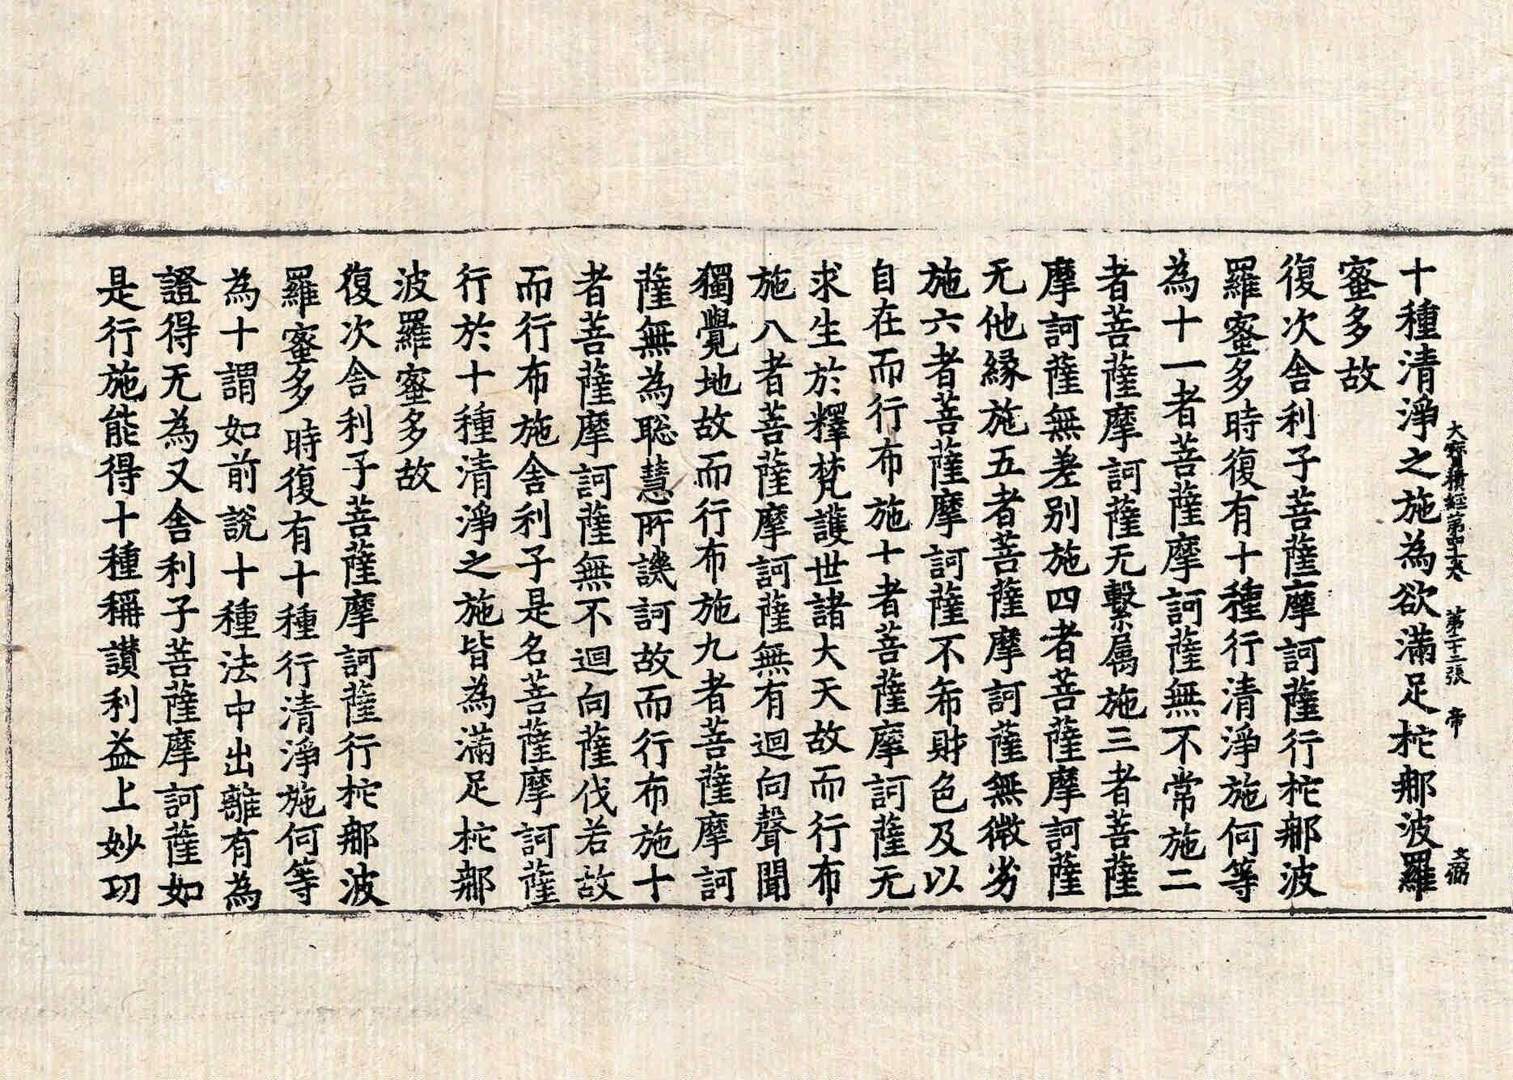 大寶積經第四十一卷 第二十二張 帝
十種清淨之施為欲滿足柁那波羅
蜜多故
復次舍利子菩薩摩訶薩行柁那波
羅蜜多時復有十種行清淨施何等
為十一者菩薩摩訶薩無不常施二
者菩薩摩訶薩无繫屬施三者菩薩
摩訶薩無差別施四者菩薩摩訶薩
无他緣施五者菩薩摩訶薩無微劣
施六者菩薩摩訶薩不希財色及以
自在而行布施十者菩薩摩訶薩无
求生於釋梵護世諸大天故而行布
施八者菩薩摩訶薩無有迴向聲聞
獨覺地故而行布施九者菩薩摩訶
薩無為聡慧所譏訶故而行布施十
者菩薩摩訶薩無不迴向薩伐若故
而行布施舍利子是名菩薩摩訶薩
行於十種清淨之施皆為滿足柁那
波羅蜜多故
復次舍利子菩薩摩訶薩行柁那波
羅蜜多時復有十種行清淨施何等
為十謂如前說十種法中出離有為
證得无為又舍利子菩薩摩訶薩如
是行施能得十種稱讚利益上妙功